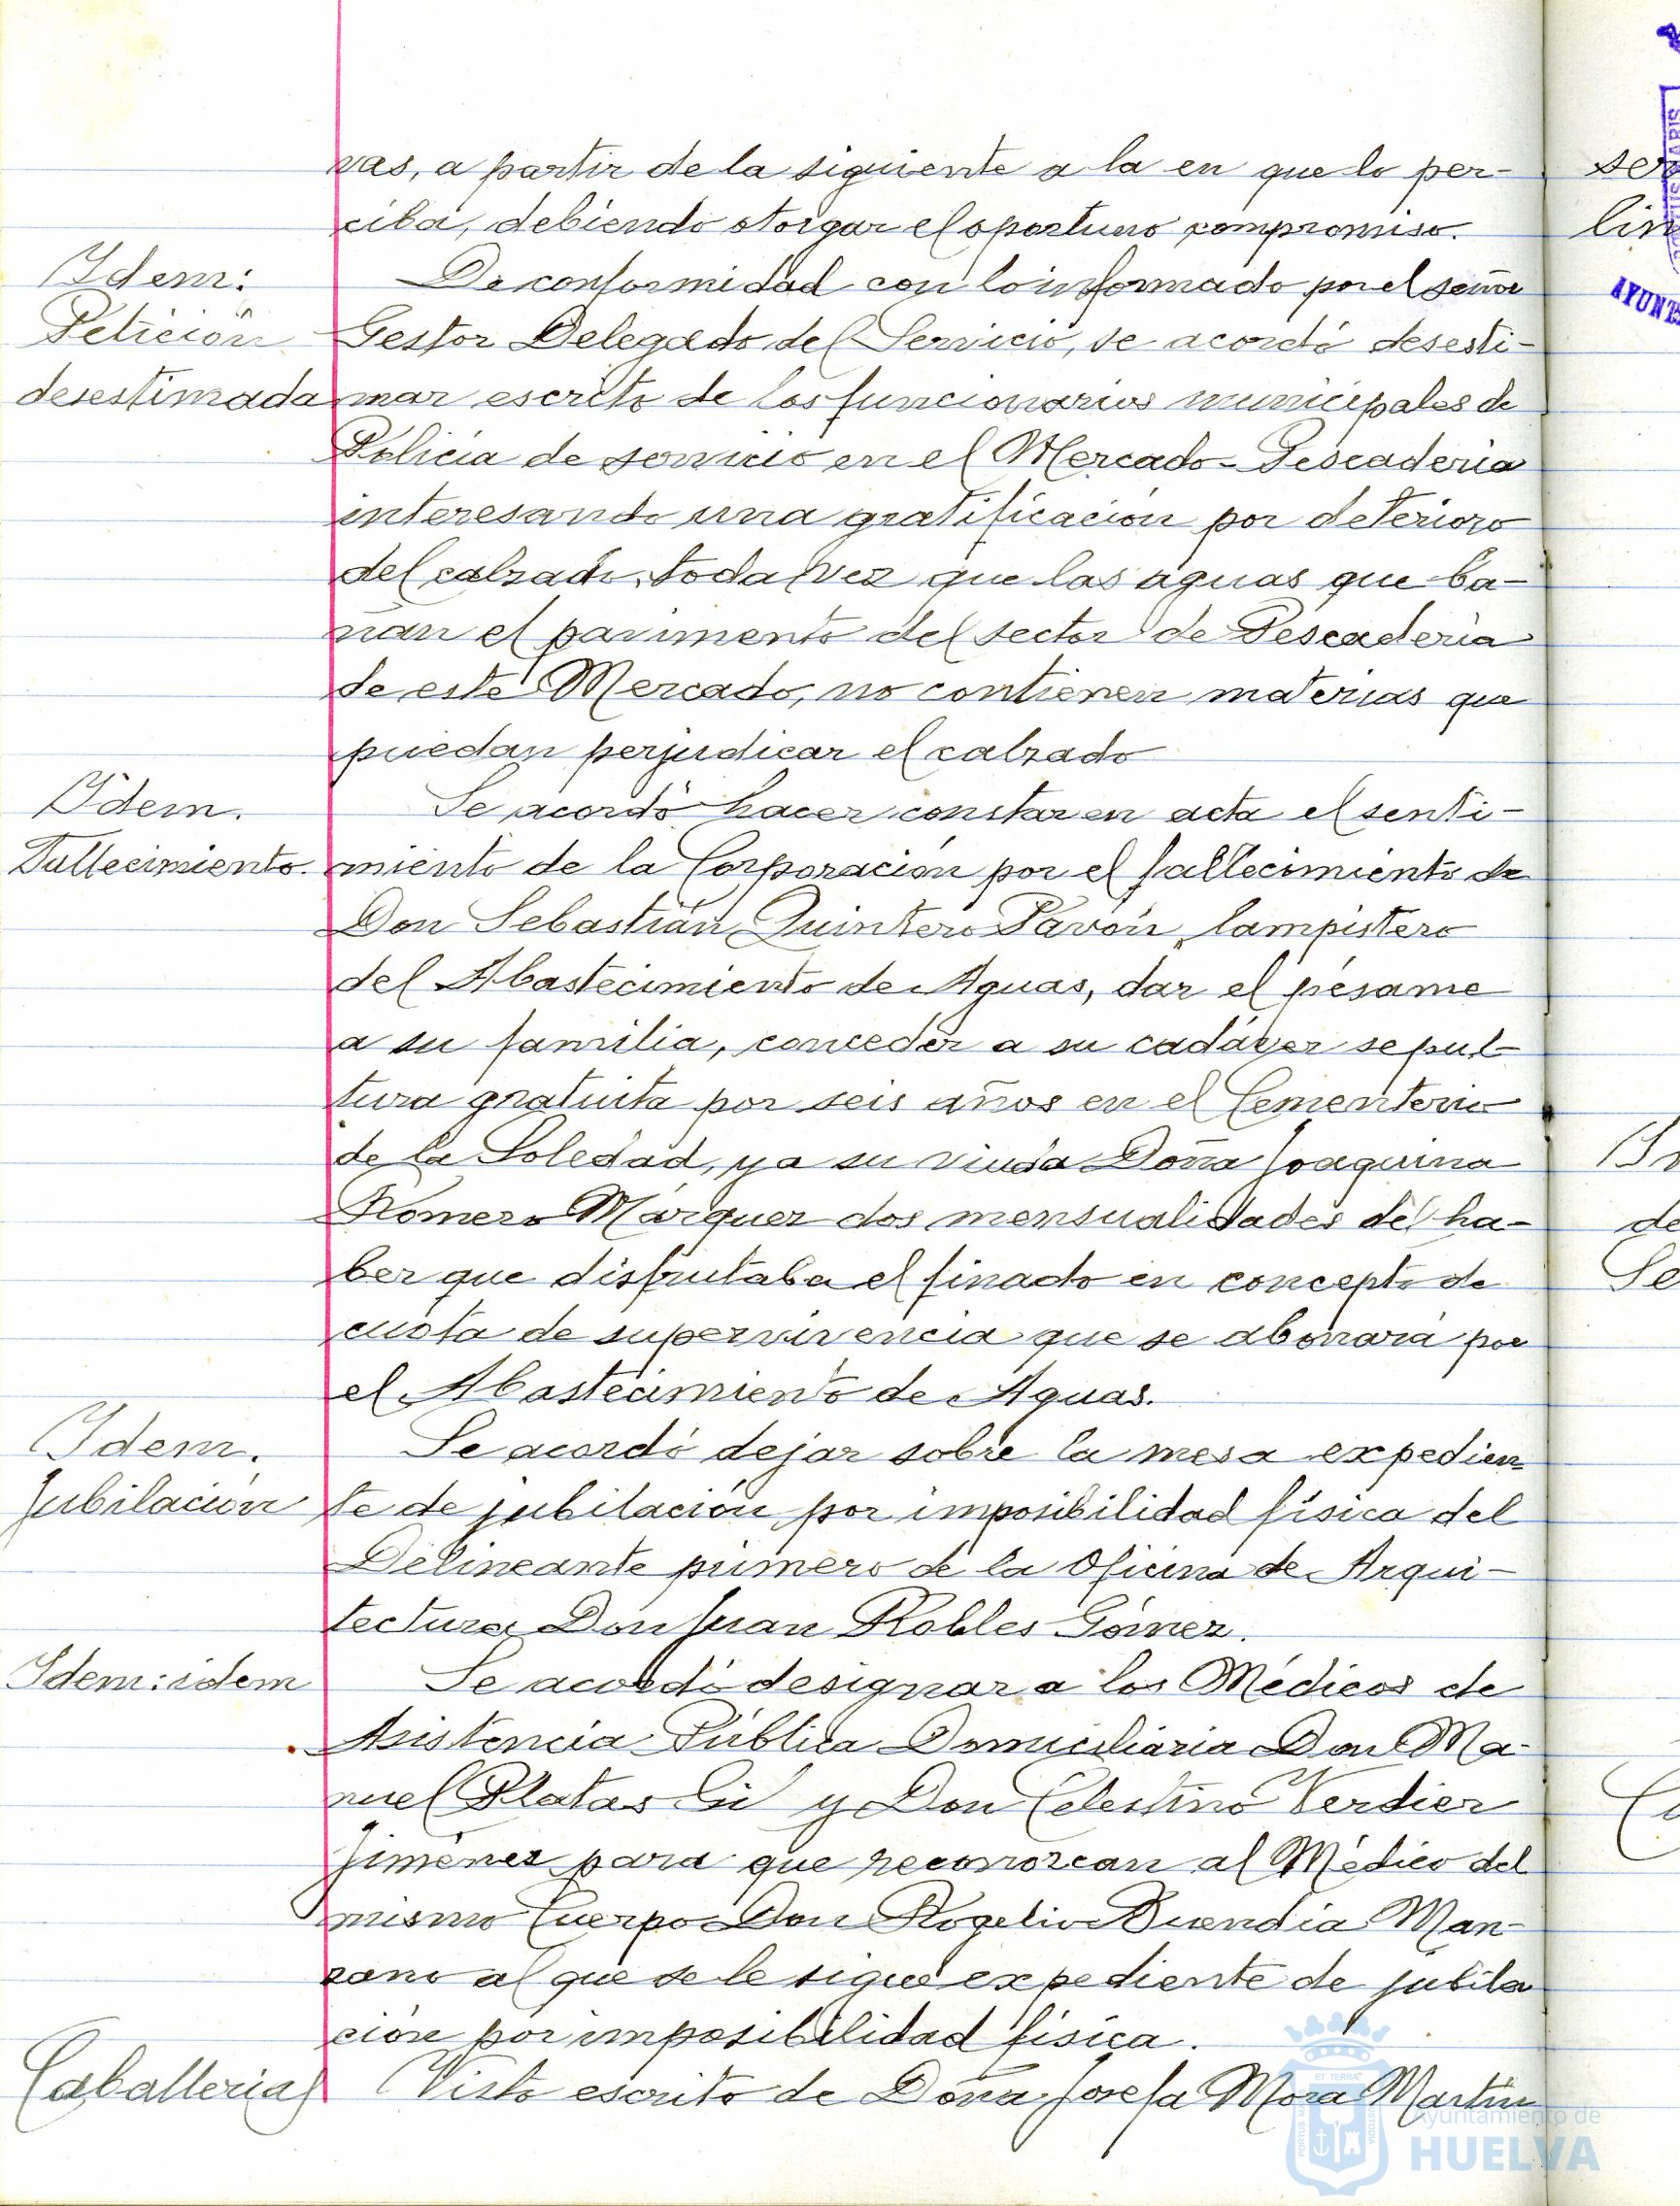 vas, a partir de la siguiente a la en que lo per-
ciba, debiendo otorgar el oportuno compromiso.
Idem:
Petición
desestimada
De conformidad con lo informado por el señor
Gestor Delegado del Servicio, se acordó desesti-
mar escrito de los funcionarios municipales de
Policia de servicio en el Mercado-Pescaderia
interesando una gratificación por deterioro
del calzado, toda vez que las aguas que ba-
ñan el pavimento del sector de Pescaderia
de este Mercado, no contienen materias que
puedan perjudicar el calzado
Idem.
Fallecimiento.
Se acordó hacer constar en acta el senti-
miento de la Corporación por el fallecimiento de
Don Sebastián Quintero Pavón, lampistero
del Abastecimiento de Aguas, dar el pésame
a su familia, conceder a su cadáver sepul-
tura gratuita por seis años en el Cementerio
de la Soledad, y a su viuda Doña Joaquina
Romero Márquez dos mensualidades del ha-
ber que disfrutaba el finado en concepto de
cuota de supervivencia que se abonará por
el Abastecimiento de Aguas.
Idem.
Jubilación
Se acordó dejar sobre la mesa expedien-
te de jubilación por imposibilidad física del
Delineante primero de la Oficina de Arqui-
tectura Don Juan Robles Gómez.
Idem: idem
Se acordó designar a los Médicos de
Asistencia Pública Domiciliaria Don Ma-
nuel Platas Gil y Don Celestino Verdier
Jiménez para que reconozcan al Médico del
mismo Cuerpo Don Rogelio Buendía Man-
zano al que se le sigue expediente de jubila
ción por imposibilidad física.
Caballerias
Visto escrito de Doña Josefa Mora Martin
ser
lin
AYUNT
de
Se
PORTUS MARIS
ET TERRAE
CUSTODIA
Ayuntamiento de
HUELVA